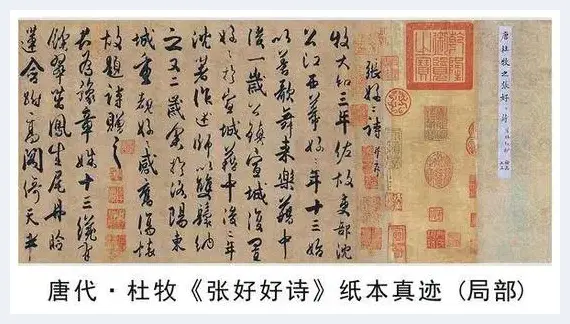 唐杜牧之張好〻詩
張好〻詩 并序
牧大和三年佐故吏部沈
公江西幕好〻年十三始
以善歌舞来樂籍中
後一歲公鎮宣城復置
好〻於宣城籍中後二年
沈著作述師以雙鬟納
之又二歲余於洛陽東
城重覩好〻感舊傷懷
故題詩贈之
君為豫章姝十三纔有
餘翠茁鳳生尾丹臉
蓮含跗高閣倚天半
唐代·杜牧《张好好诗》纸本真迹 (局部)